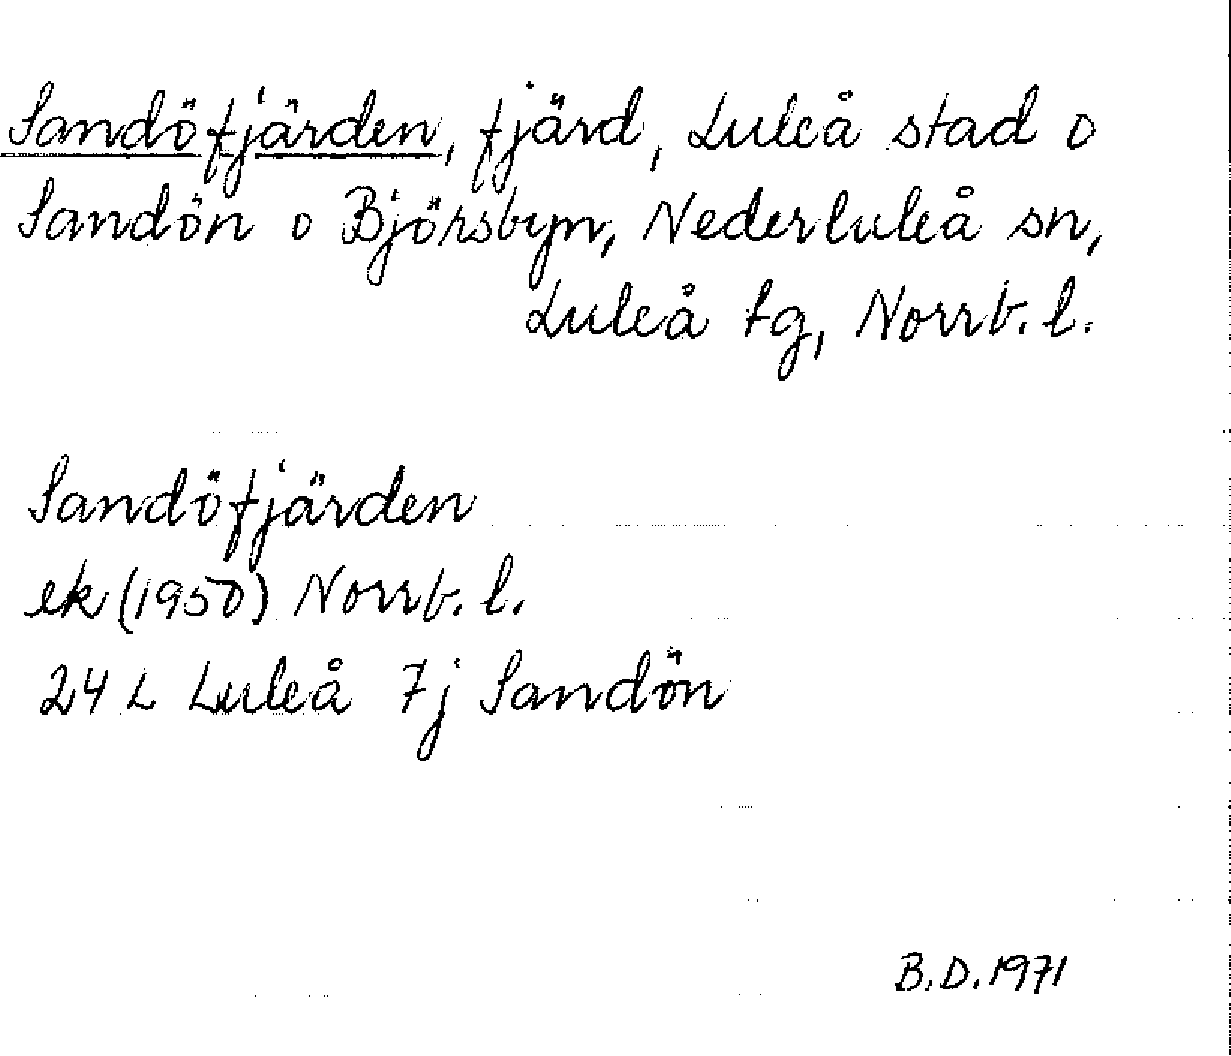 Sandöfjärden, fjärd, Luleå stad o
Sandön o Björsbyn, Nederluleå sn,
Luleå tg, Norrb. l.
Sandöfjärden
ek (1950) Norrb. l.
24 L Luleå 7j Sandön
B.D. 1971